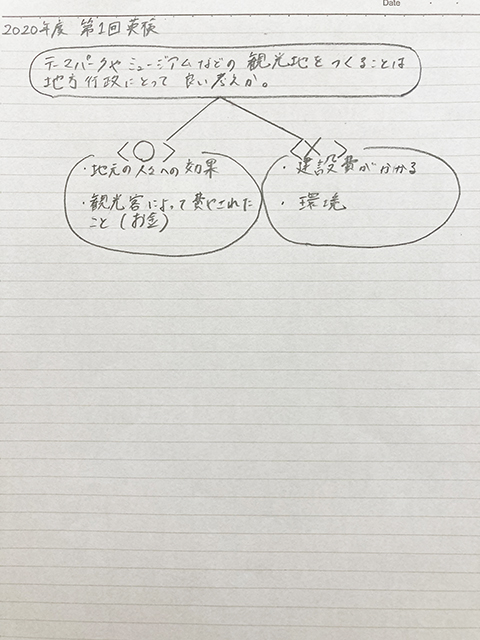 Date
2020年度 第1回英検
テーマパークやミュージアムなどの観光地をつくることは
地方行政にとって良い考えか。
<〇>
・地元の人々への効果
・観光客によって費やされた
こと(お金)
<×>
・建設費がかかる
・環境